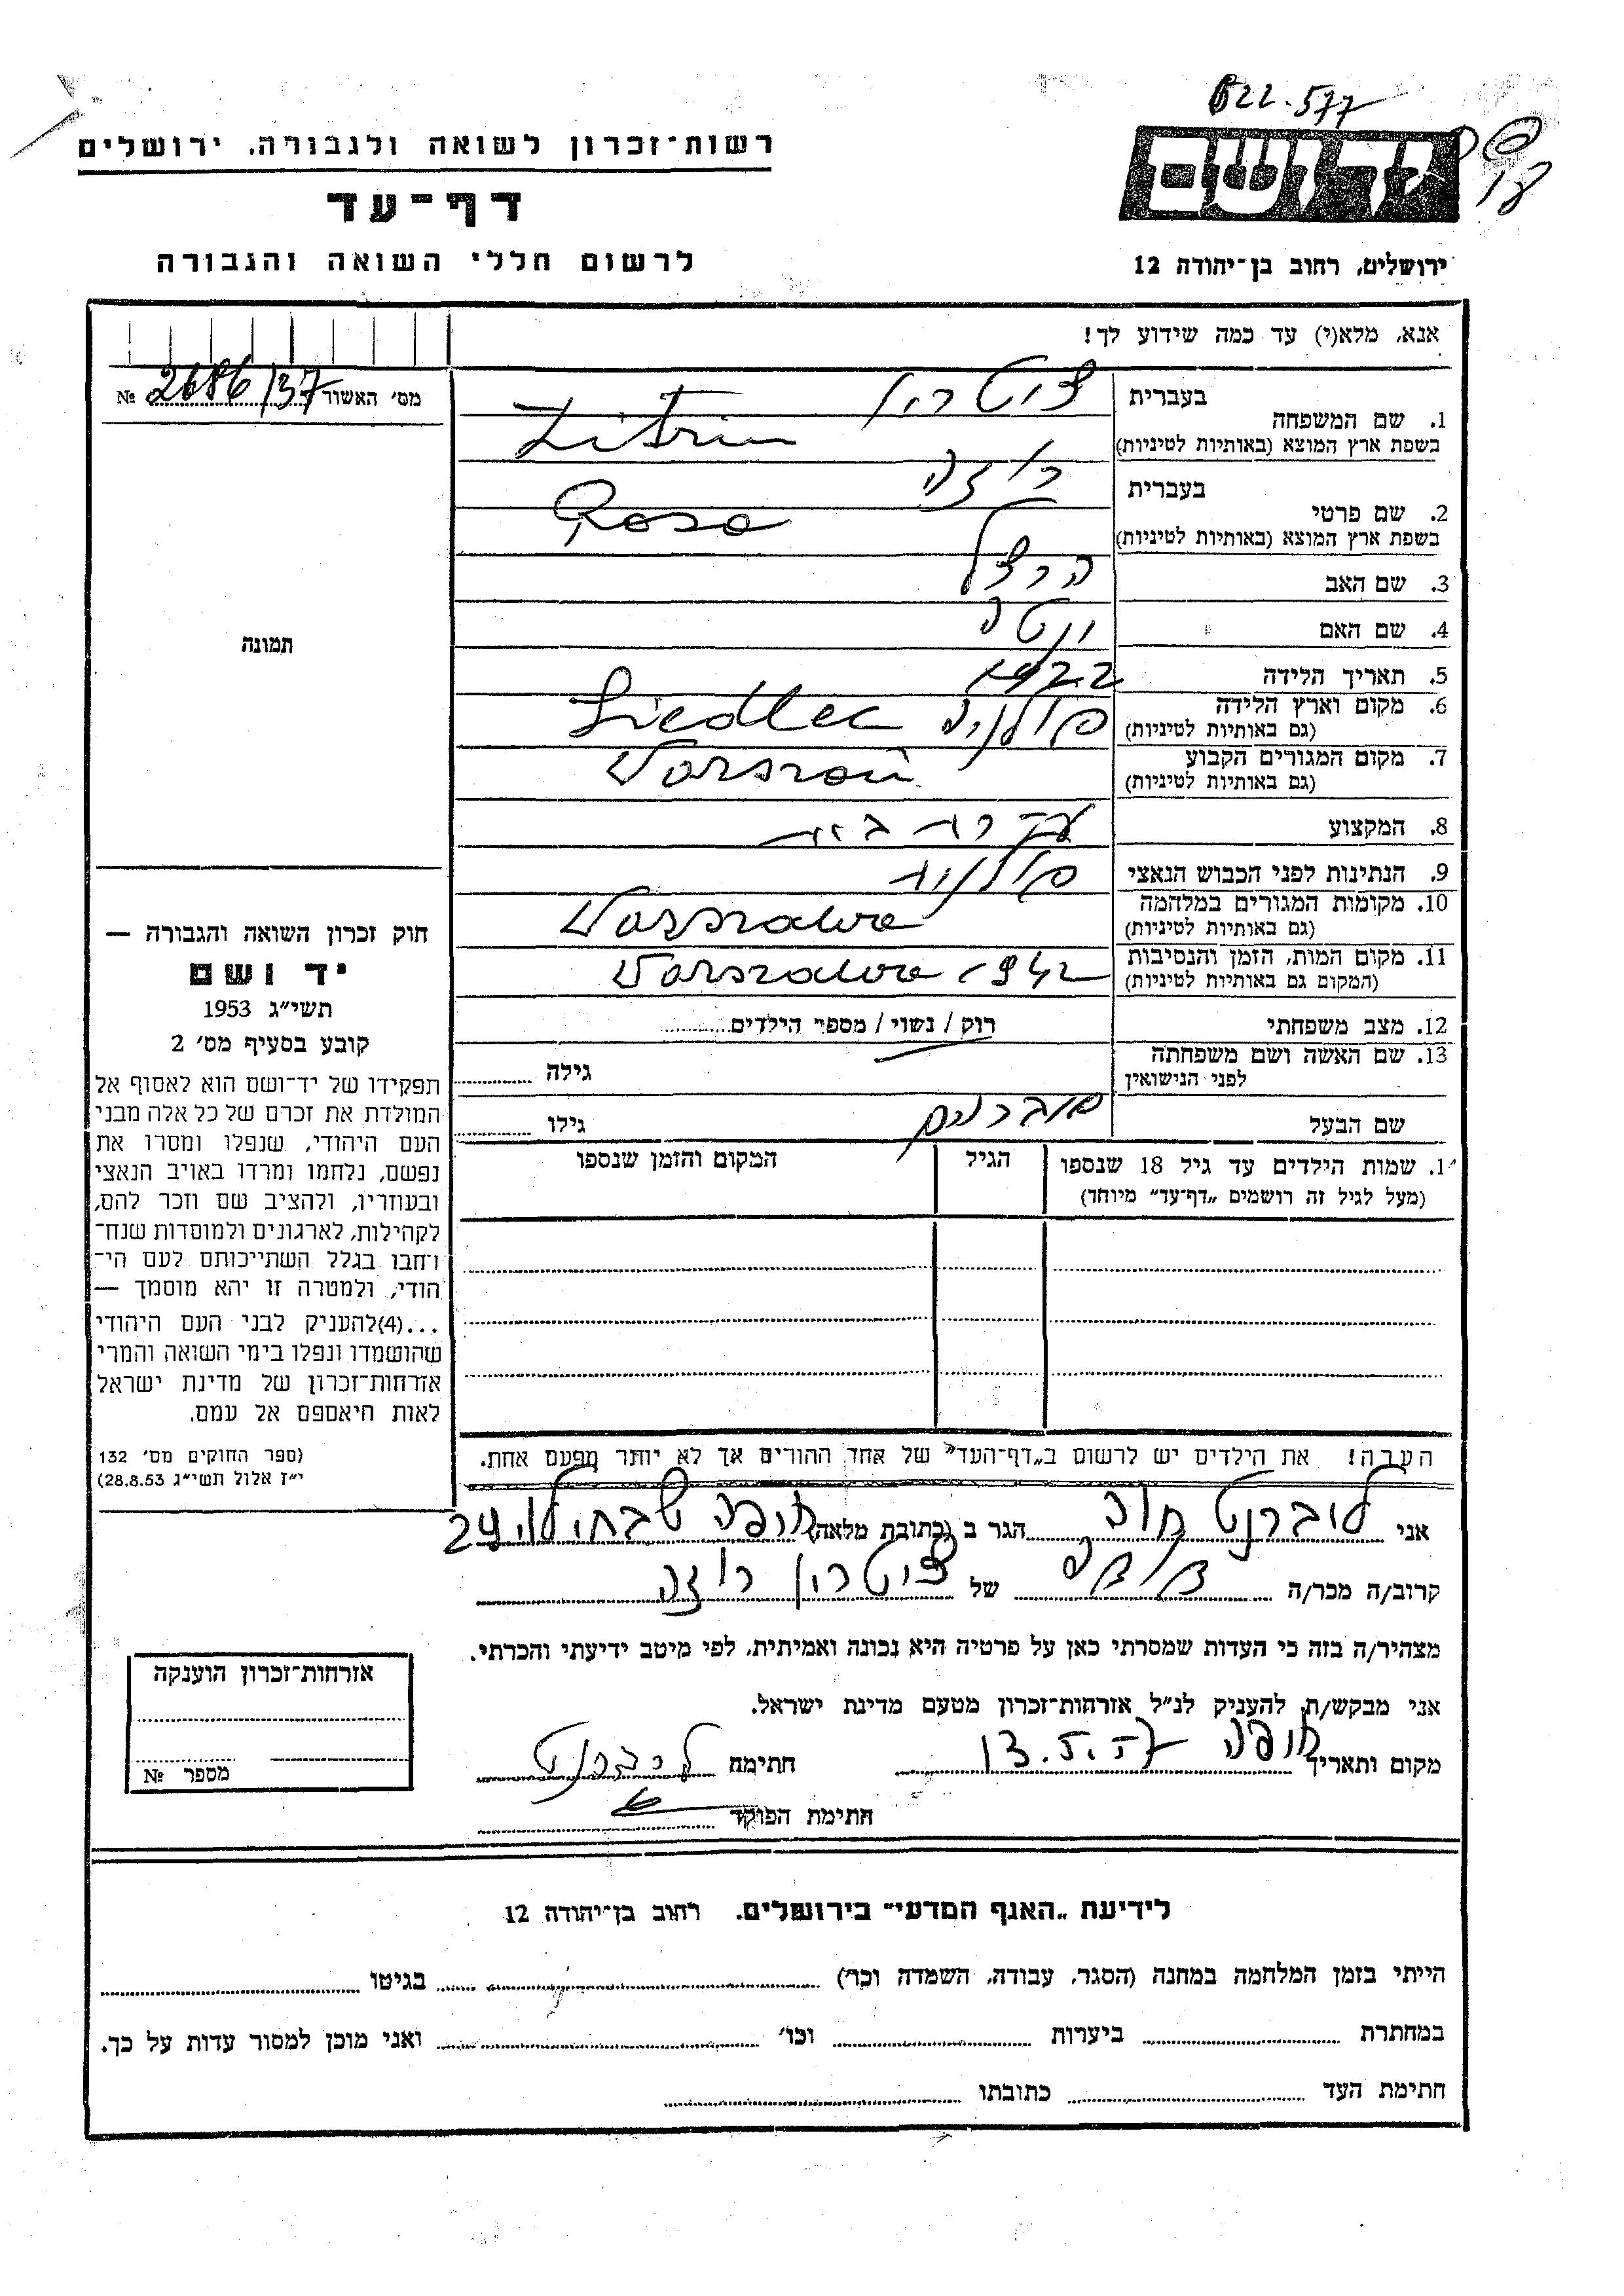 622.577
רשות־זכרון לשואה ולגבורה, ירושלים
דף־עד
לרשום חללי השואה והגבורה
יד ושם
ירושלים, רחוב בן־יהודה 12
אנא, מלא(י) עד כמה שידוע לך!
מס׳ האשור 2686/37 №
תמונה
1. שם המשפחה בעברית ציטרין
בשפת ארץ המוצא (באותיות לטיניות) Zitrin
2. שם פרטי בעברית רוזה
בשפת ארץ המוצא (באותיות לטיניות) Rosa
3. שם האב הרצל
4. שם האם יטה
5. תאריך הלידה 1922
6. מקום וארץ הלידה (גם באותיות לטיניות) פולניה Siedlec
7. מקום המגורים הקבוע (גם באותיות לטיניות)
8. המקצוע עקרת בית
9. הנתינות לפני הכבוש הנאצי פולנית
10. מקומות המגורים במלחמה (גם באותיות לטיניות) Warszawa
11. מקום המות, הזמן והנסיבות (המקום גם באותיות לטיניות) Warszawa 1942
12. מצב משפחתי רוק / נשוי / מספר הילדים
13. שם האשה ושם משפחתה לפני הנישואין גילה
שם הבעל גילו
1. שמות הילדים עד גיל 18 שנספו
(מעל לגיל זה רושמים „דף־עד״ מיוחד)
הגיל
המקום והזמן שנספו
חוק זכרון השואה והגבורה —
יד ושם
תשי״ג 1953
קובע בסעיף מס׳ 2
תפקידו של יד־ושם הוא לאסוף אל
המולדת את זכרם של כל אלה מבני
העם היהודי, שנפלו ומסרו את
נפשם, נלחמו ומרדו באויב הנאצי
ובעוזריו, ולהציב שם וזכר להם,
לקהילות, לארגונים ולמוסדות שנח־
רחבו בגלל השתייכותם לעם הי־
הודי, ולמטרה זו יהא מוסמך —
...(4)להעניק לבני העם היהודי
שהושמדו ונפלו בימי השואה והמרי
אזרחות־זכרון של מדינת ישראל
לאות היאספם אל עמם.
(ספר החוקים מס׳ 132
י״ז אלול תשי״ג 28.8.53)
הערה! את הילדים יש לרשום ב„דף־העד״ של אחד ההורים אך לא יותר מפעם אחת.
אני ליברנט הגר ב (כתובת מלאה) חיפה 29
קרוב/ה מכר/ה של ציטרין רוזה
מצהיר/ה בזה כי העדות שמסרתי כאן על פרטיה היא נכונה ואמיתית, לפי מיטב ידיעתי והכרתי.
אני מבקש/ת להעניק לנ״ל אזרחות־זכרון מטעם מדינת ישראל.
מקום ותאריך חיפה 13.5.57 חתימה ליברנט
חתימת הפוקד
אזרחות־זכרון הוענקה
מספר №
לידיעת „האגף המדעי״ בירושלים, רחוב בן־יהודה 12
הייתי בזמן המלחמה במחנה (הסגר, עבודה, השמדה וכו׳) בגיטו
במחתרת ביערות וכו׳ ואני מוכן למסור עדות על כך.
חתימת העד כתובתו